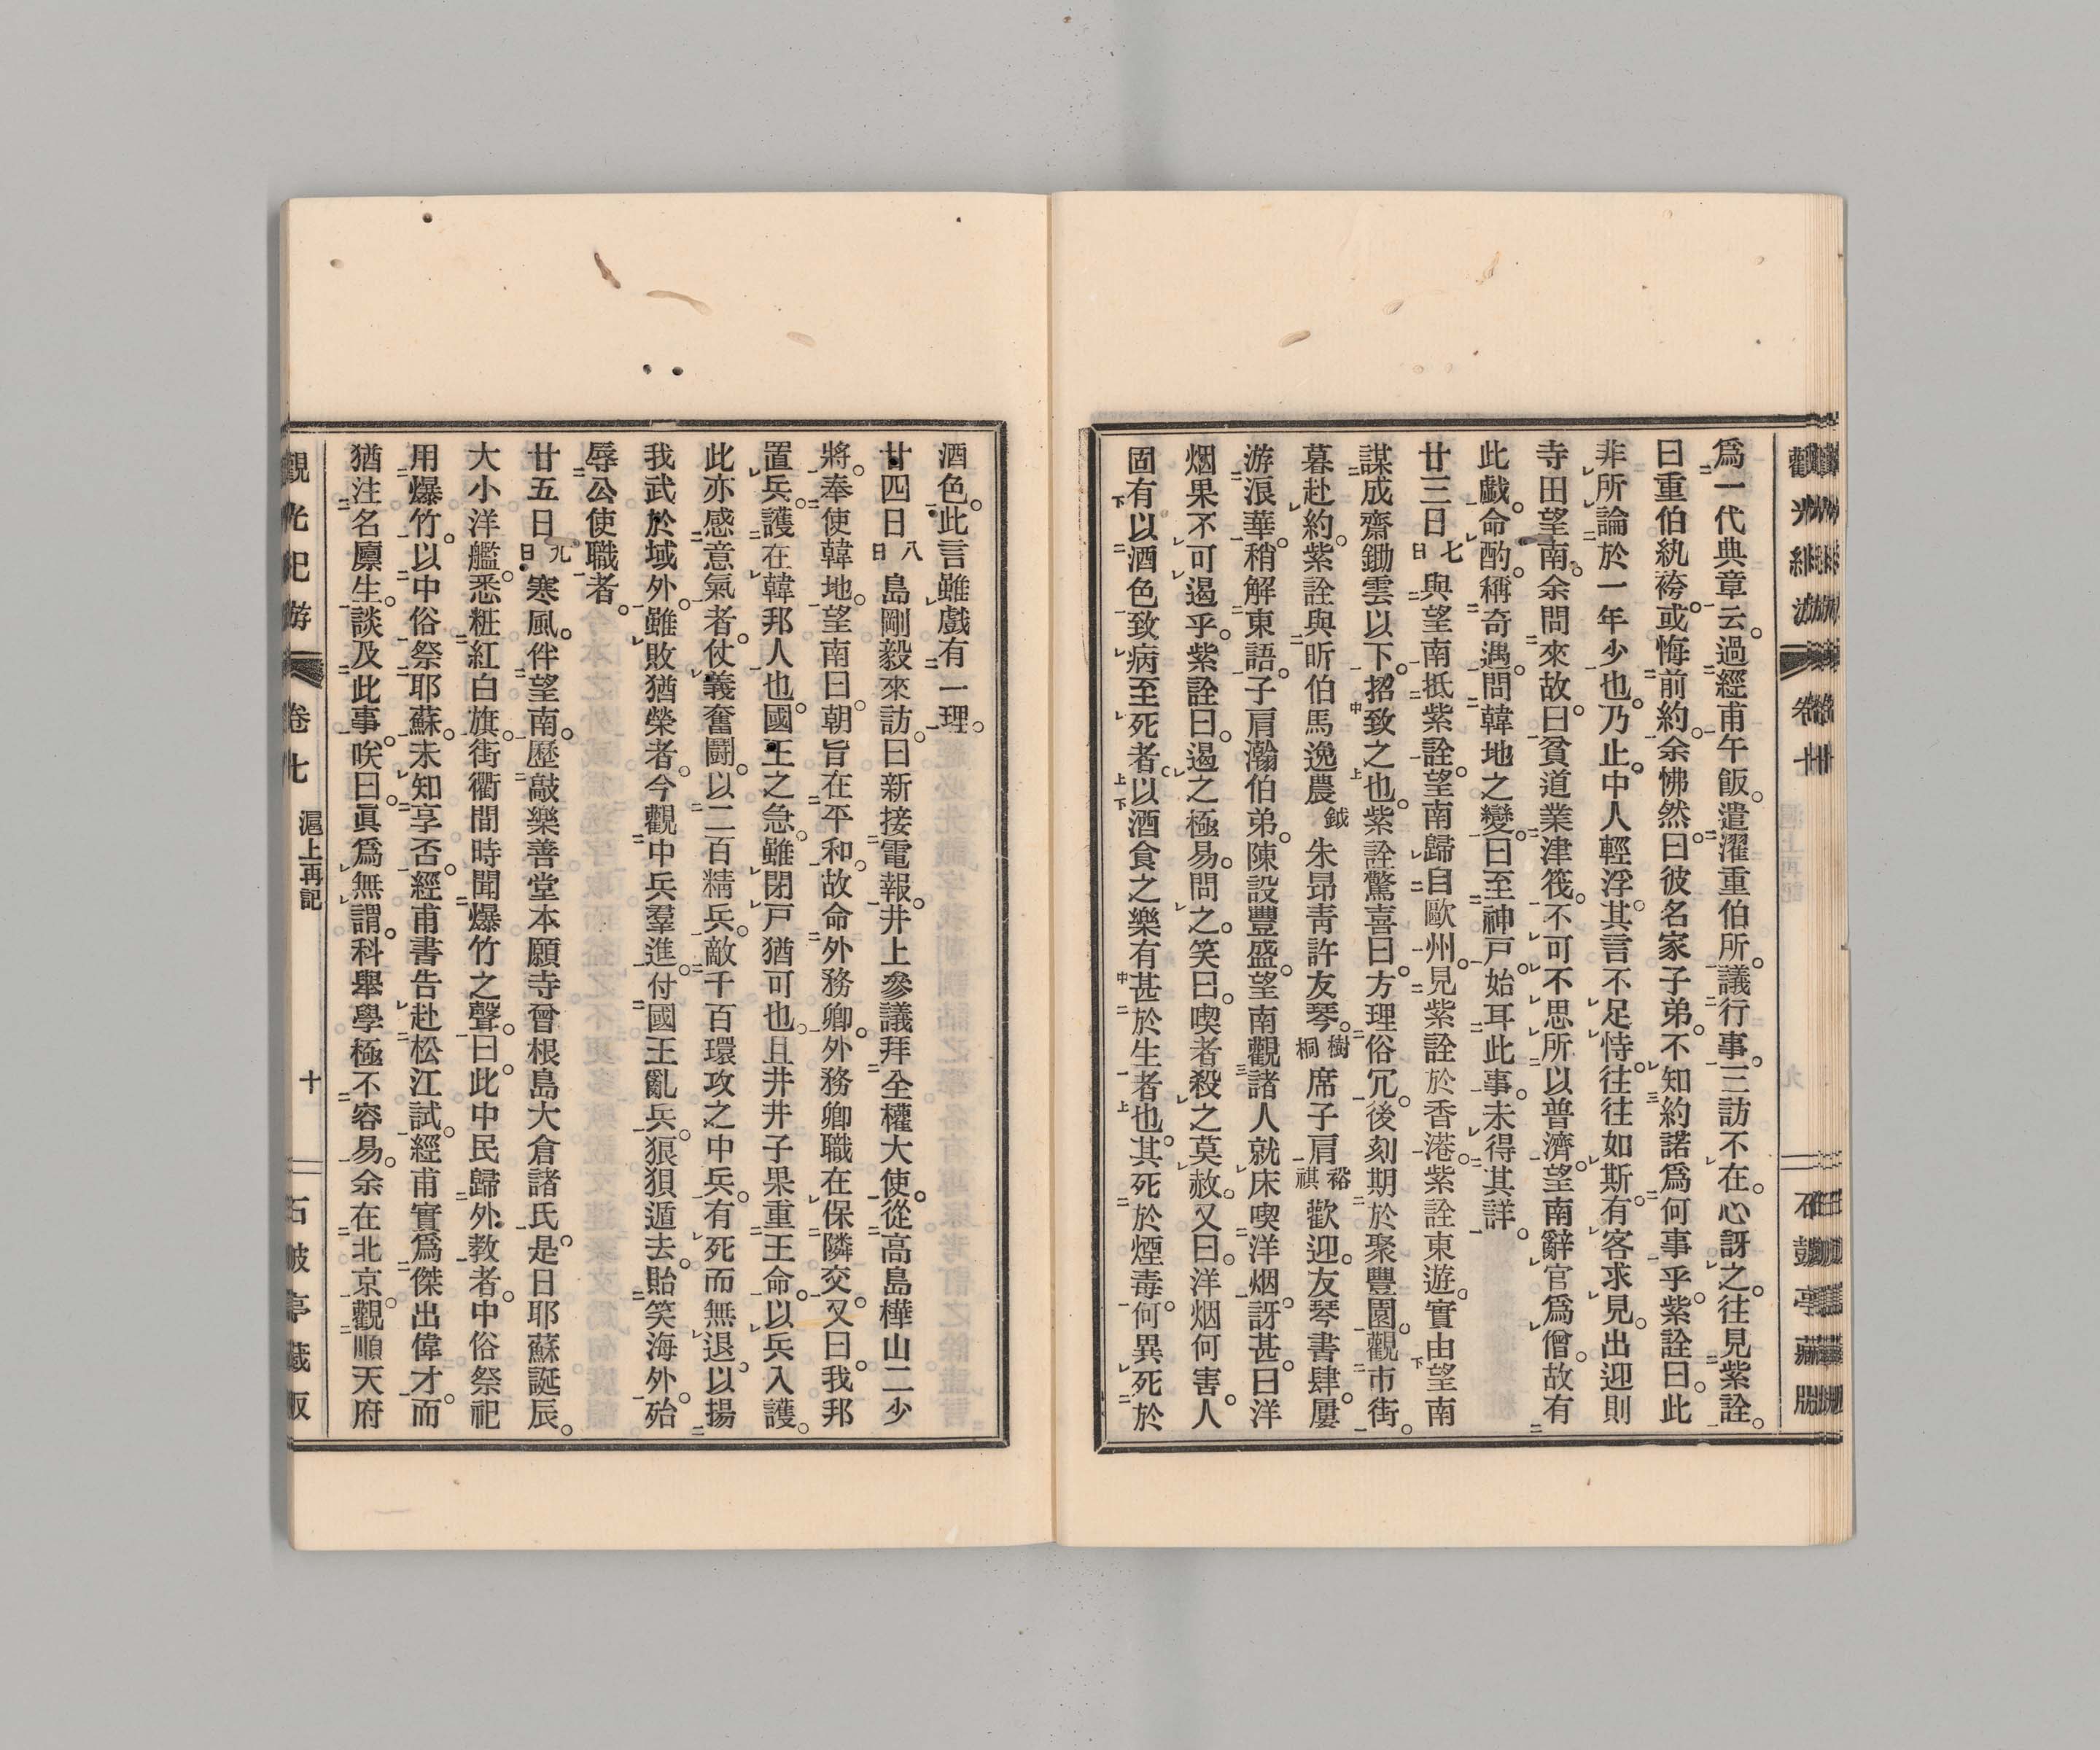 爲一代典章云。過經甫午飯。遣濯重伯所。議行事。三訪不在。心訝之。往見紫詮。
曰重伯紈袴。或悔前約。余怫然。曰彼名家子弟。不知約諾爲何事乎。紫詮曰。此
非所論於一年少也。乃止。中人輕浮。其言不足恃。往往如斯。有客求見。出迎則
寺田望南。余問來故。曰貧道業津筏。不可不思所以普濟。望南辭官爲僧。故有
此戱。命酌。稱奇遇。問韓地之變。曰至神戶。始耳此事。未得其詳。
廿三日七日與望南抵紫詮。望南歸自歐州。見紫詮於香港。紫詮東遊。實由望南
謀成齋鋤雲以下。招致之也。紫詮驚喜曰。方理俗冗。後刻期於聚豐園。觀市街。
暮赴約。紫詮與昕伯馬逸農鉞朱昂靑許友琴。樹桐席子肩裕祺歡迎。友琴書肆。屢
游浪華。稍解東語。子肩瀚伯弟。陳設豐盛。望南觀諸人就床喫洋烟。訝甚。曰洋
烟果不可遏乎。紫詮曰。遏之極易。問之。笑曰。喫者殺之莫赦。又曰。洋烟何害。人
固有以酒色致病至死者。以酒食之樂有甚於生者也。其死於煙毒。何異死於
觀光紀游
卷七
石鼓亭藏版
酒色。此言雖戲有一理。
廿四日八日島剛毅來訪。曰新接電報。井上參議拜全權大使。從高島樺山二少
將。奉使韓地。望南曰。朝旨在平和。故命外務卿。外務卿職在保隣交。又曰。我邦
置兵。護在韓邦人也。國王之急。雖閉戶猶可也。且井井子果重王命。以兵入護。
此亦感意氣者。仗義奮鬪。以二百精兵。敵千百環攻之中兵。有死而無退。以揚
我武於域外。雖敗猶榮者。今觀中兵羣進。付國王亂兵。狼狽遁去。貽笑海外。殆
辱公使職者。
廿五日九日寒風。伴望南。歷敲樂善堂本願寺曾根島大倉諸氏。是日耶蘇誕辰。
大小洋艦。悉粧紅白旗。街衢間時聞爆竹之聲。曰。此中民歸外敎者。中俗祭祀
用爆竹。以中俗祭耶蘇。未知享否。經甫書告赴松江試。經甫實爲傑出偉才。而
猶注名廩生。談及此事。咲曰。眞爲無謂。科舉學極不容易。余在北京。觀順天府
觀光紀游
卷七
滬上再記
十
石鼓亭藏版